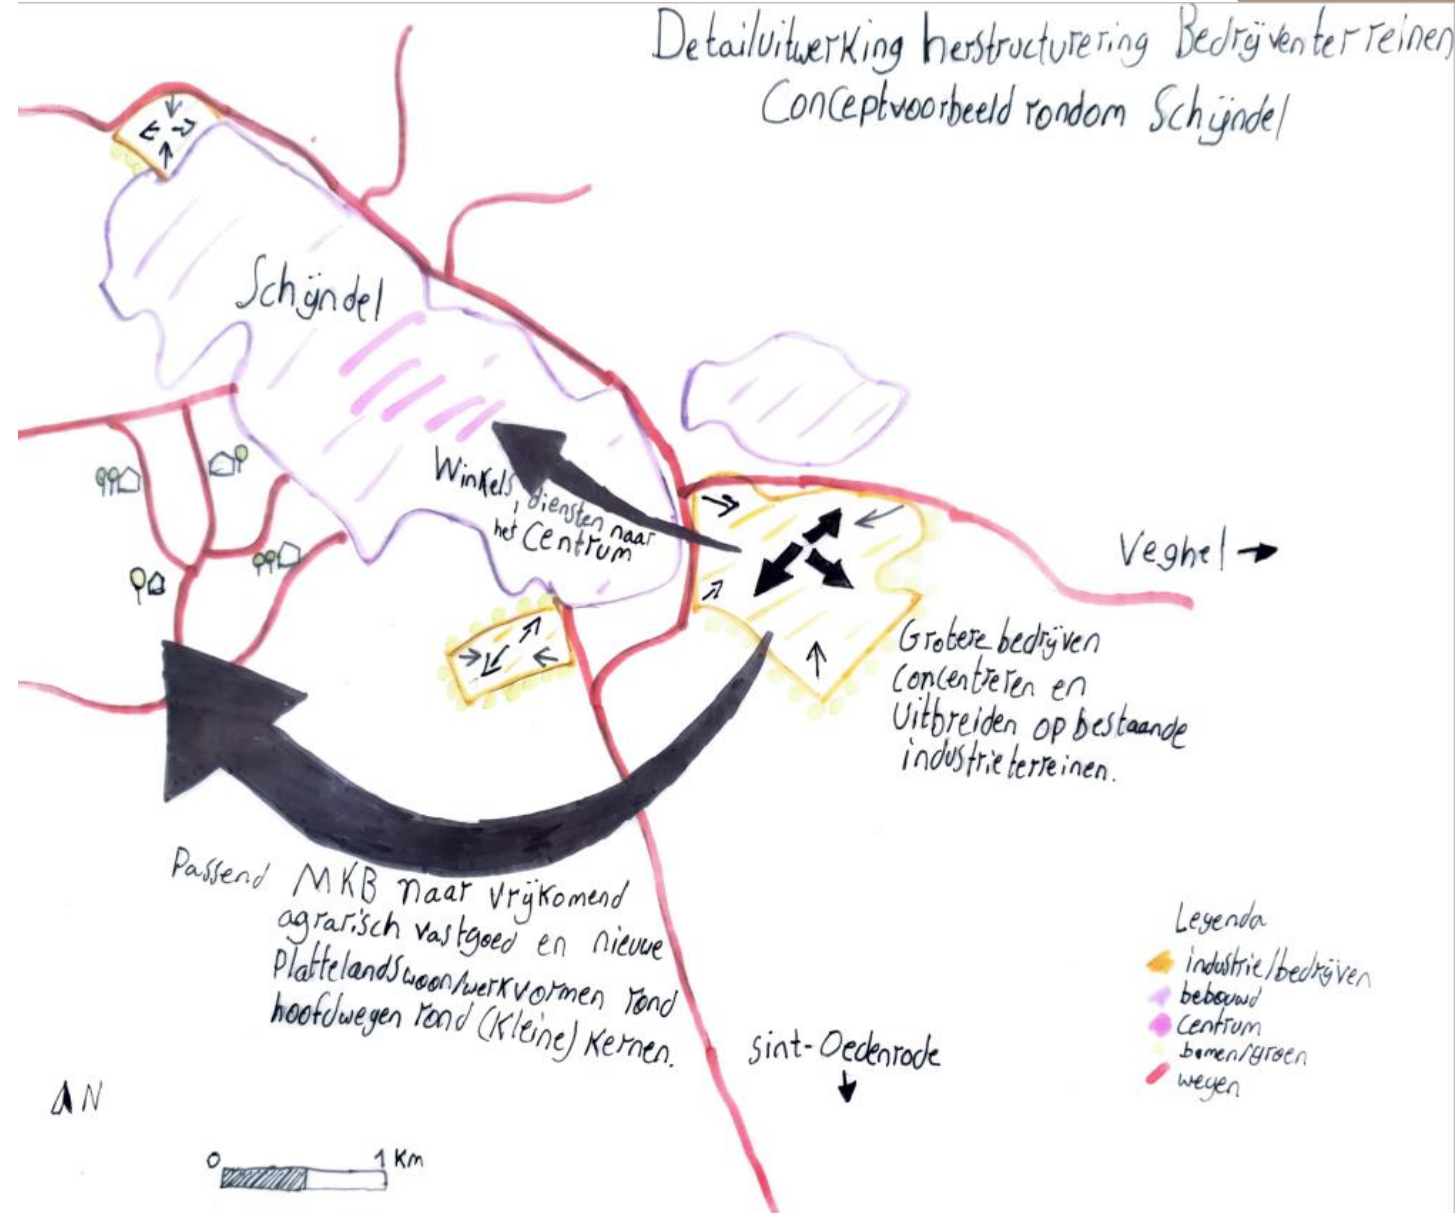 Detailuitwerking herstructurering Bedrijventerreinen
Conceptvoorbeeld rondom Schijndel
Schijndel
Winkels, diensten naar
het Centrum
Veghel
Grotere bedrijven
concentreren en
uitbreiden op bestaande
industrieterreinen.
Passend MKB naar vrijkomend
agrarisch vastgoed en nieuwe
plattelandswoon/werkvormen rond
hoofdwegen rond (kleine) kernen.
Sint-Oedenrode
Legenda
industrie/bedrijven
bebouwd
Centrum
bomen/groen
wegen
N
0 1 Km